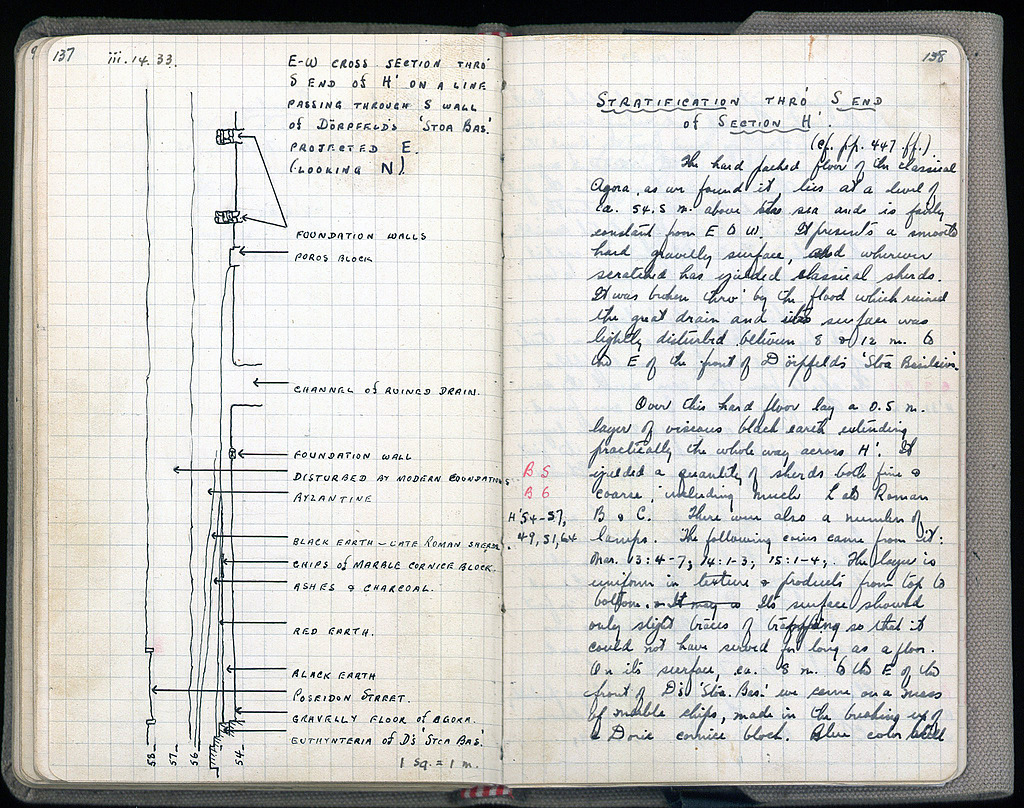 9
137
iii.14.33.
E-W CROSS SECTION THRO'
S END OF H' ON A LINE
PASSING THROUGH S WALL
OF DÖRPFELD'S 'STOA BAS.'
PROJECTED E.
(LOOKING N)
FOUNDATION WALLS
POROS BLOCK
CHANNEL OF RUINED DRAIN.
FOUNDATION WALL
DISTURBED BY MODERN FOUNDATIONS
BYZANTINE
BLACK EARTH - LATE ROMAN SHERDS.
CHIPS OF MARBLE CORNICE BLOCK.
ASHES & CHARCOAL.
RED EARTH.
BLACK EARTH
POSEIDON STREET.
GRAVELLY FLOOR OF AGORA.
EUTHYNTERIA OF D'S 'STOA BAS.'
58 57 56 54
1 SQ. = 1 M.
138
STRATIFICATION THRO' S END
OF SECTION H'.
(cf. pp. 447 ff.)
The hard packed floor of the classical
Agora, as we found it, lies at a level of
ca. 54.5 m. above the sea and is fairly
constant from E to W. It presents a smooth
hard gravelly surface, and wherever
scratched has yielded classical sherds.
It was broken thro' by the flood which ruined
the great drain and its surface was
lightly disturbed between 8 & 12 m. to
the E of the front of Dörpfeld's 'Stoa Basileios'.
Over this hard floor lay a 0.5 m.
layer of viscous black earth extending
practically the whole way across H'. It
B5 yielded a quantity of sherds both fine &
B6 coarse, including much Late Roman
H'54-57, B & C. There were also a number of
49, 51, 64 lamps. The following coins came from it:
Mar. 13: 4-7; 14: 1-3; 15: 1-4;. The layer is
uniform in texture & products from top to
bottom. Its surface showed
only slight traces of trampling so that it
could not have served for long as a floor.
On its surface, ca. 8 m. to the E of the
front of D's 'Stoa Bas.' we came on a mass
of marble chips, made in the breaking up of
a Doric cornice block. Blue color